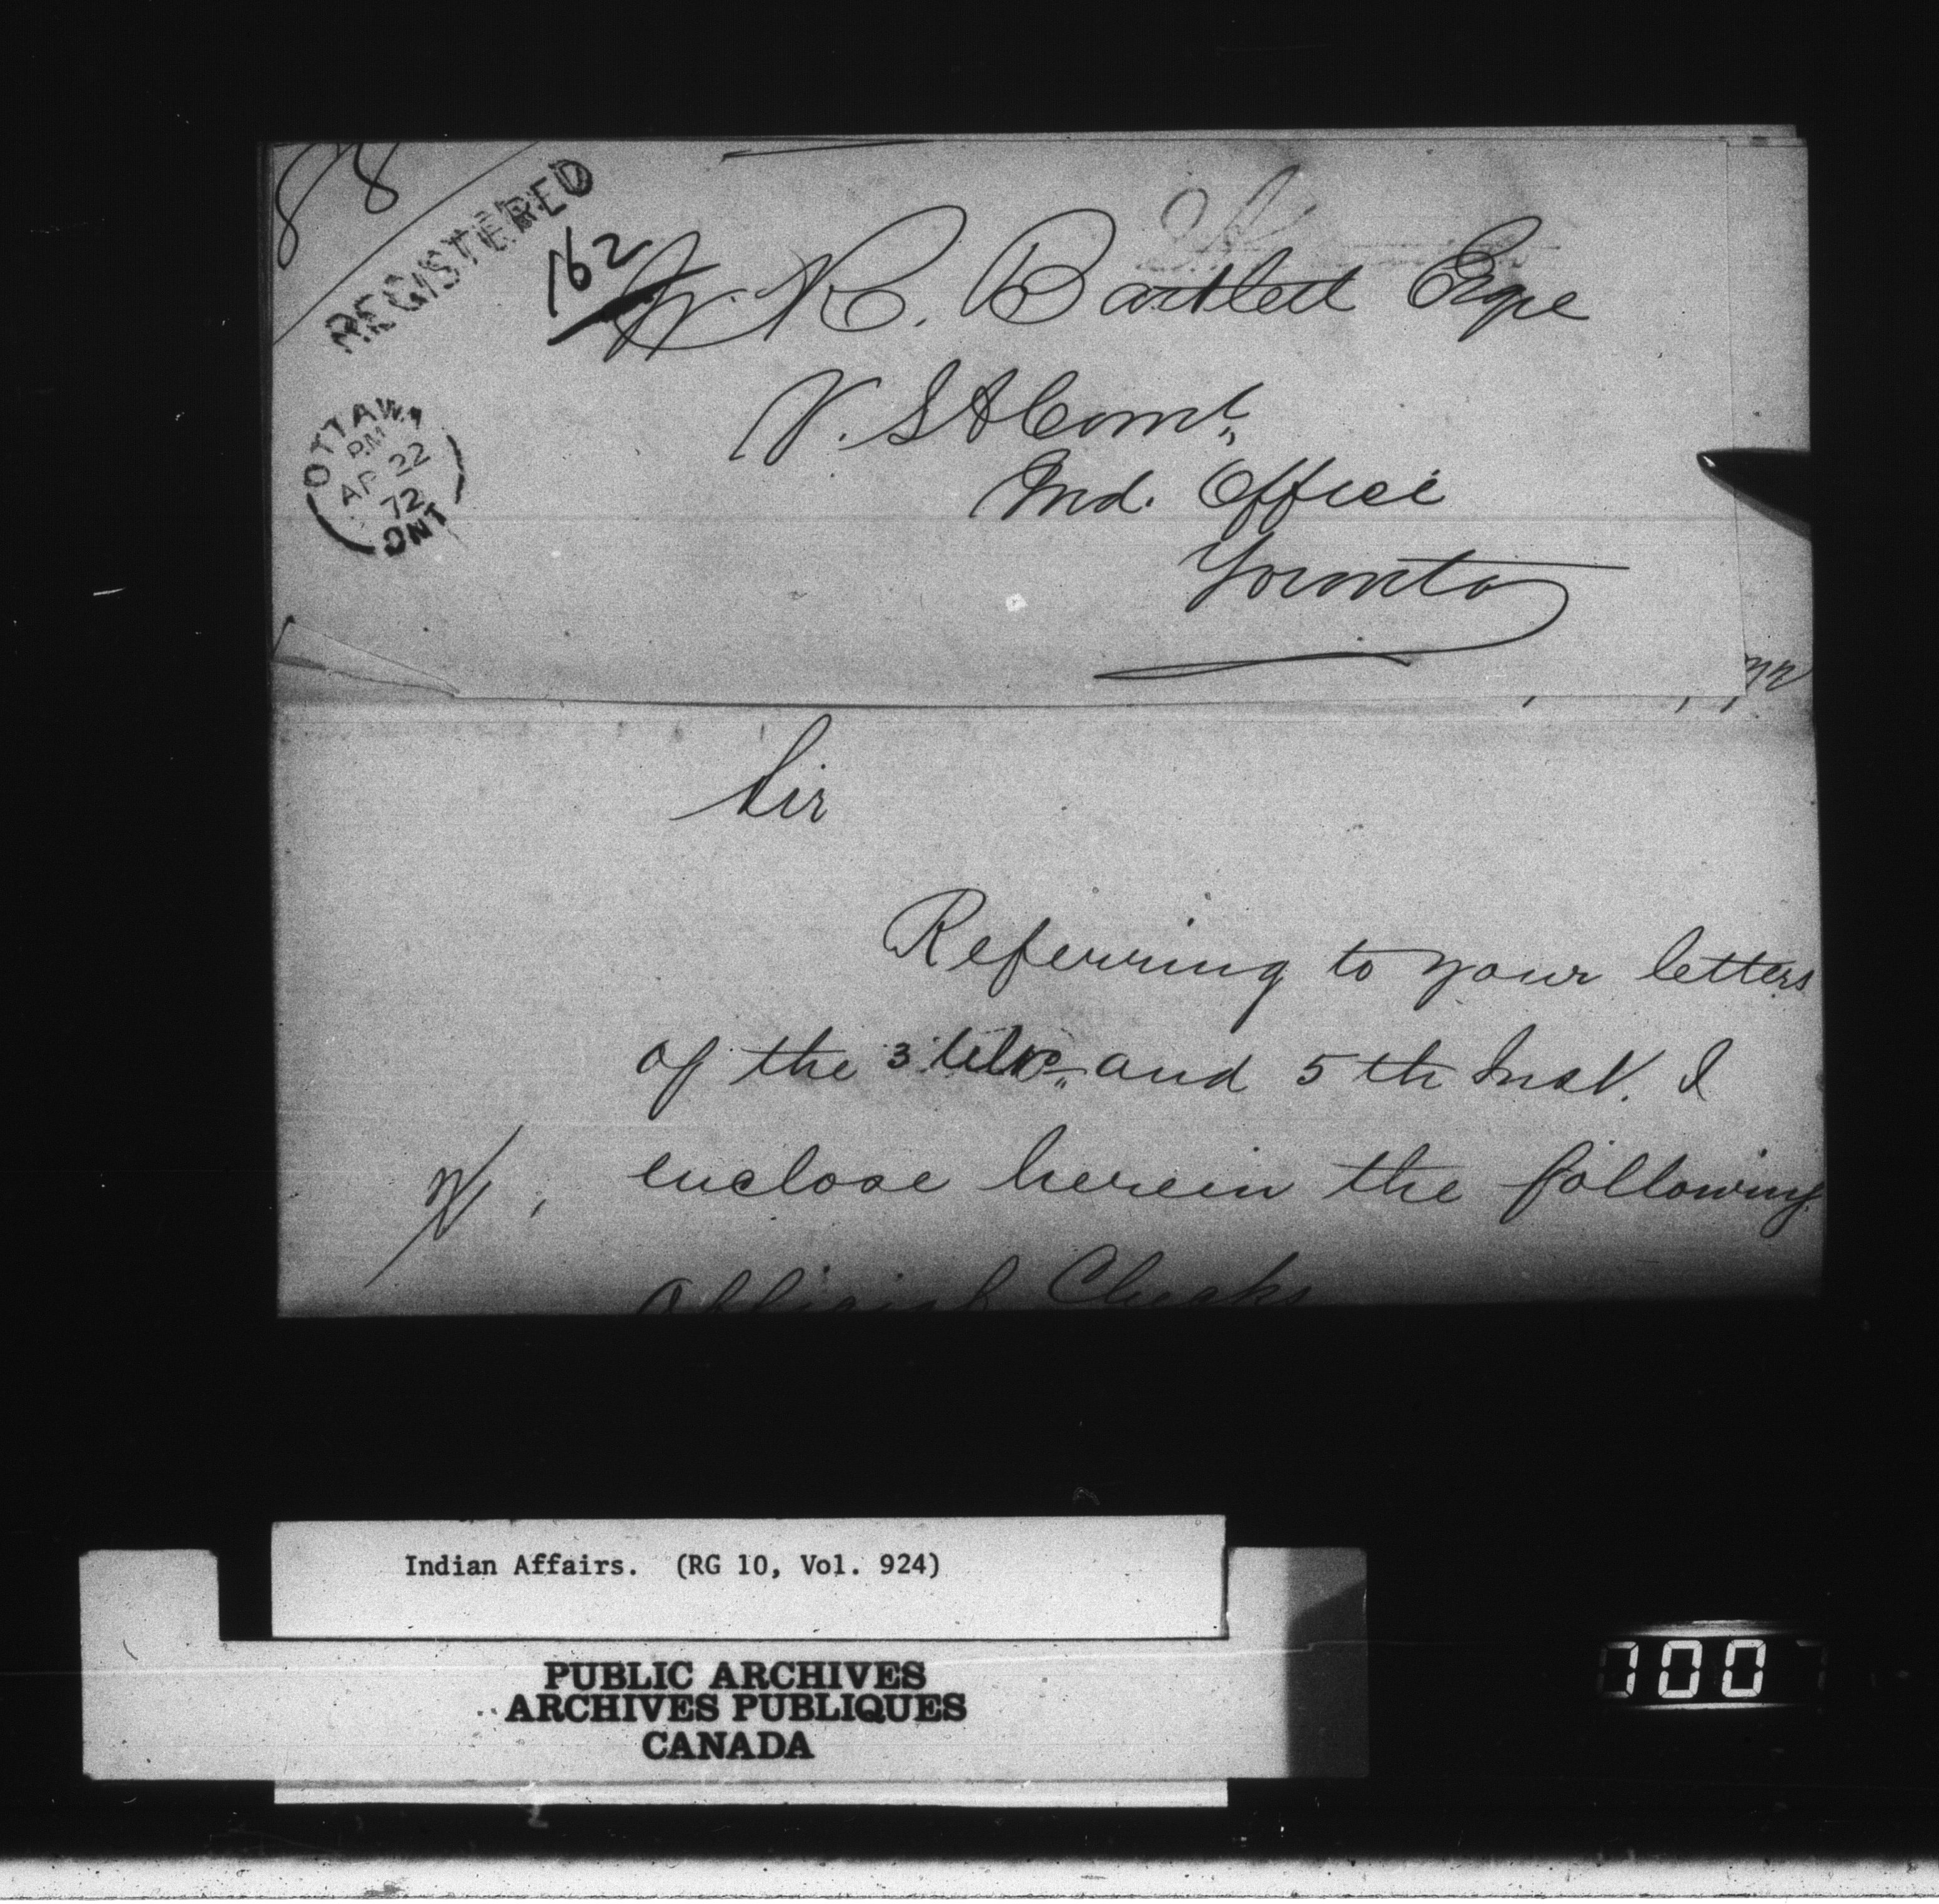 88
REGISTERED
162
W. R. Bartlett Esqre
V. S & Comr.
Ind. Office
Toronto
OTTAWA
PM
AP 22
72
ONT
Sir
Referring to your letters
of the 3 and 5th Inst. I
enclose herein the following
Official Cheks
Indian Affairs. (RG 10, Vol. 924)
PUBLIC ARCHIVES
ARCHIVES PUBLIQUES
CANADA
100